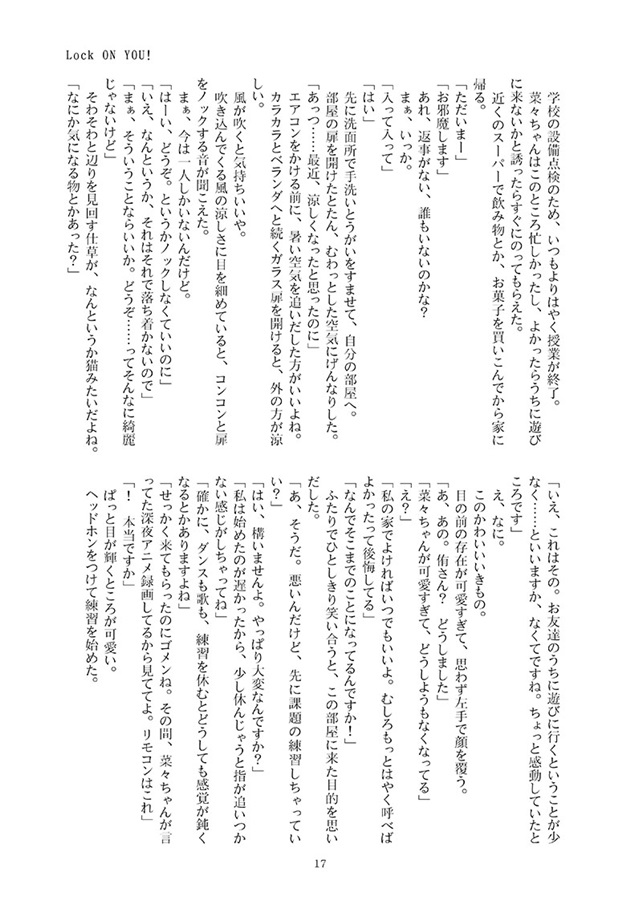 Lock ON YOU!
　学校の設備点検のため、いつもよりはやく授業が終了。
　菜々ちゃんはこのところ忙しかったし、よかったらうちに遊び
に来ないかと誘ったらすぐにのってもらえた。
　近くのスーパーで飲み物とか、お菓子を買いこんでから家に
帰る。
「ただいまー」
「お邪魔します」
　あれ、返事がない、誰もいないのかな？
　まぁ、いっか。
「入って入って」
「はい」
　先に洗面所で手洗いとうがいをすませて、自分の部屋へ。
　部屋の扉を開けたとたん、むわっとした空気にげんなりした。
「あっつ……最近、涼しくなったと思ったのに」
　エアコンをかける前に、暑い空気を追いだした方がいいよね。
　カラカラとベランダへと続くガラス扉を開けると、外の方が涼
しい。
　風が吹くと気持ちいいや。
　吹き込んでくる風の涼しさに目を細めていると、コンコンと扉
をノックする音が聞こえた。
　まぁ、今は一人しかいないんだけど。
「はーい、どうぞ。というかノックしなくていいのに」
「いえ、なんというか、それはそれで落ち着かないので」
「まぁ、そういうことならいいか。どうぞ……ってそんなに綺麗
じゃないけど」
　そわそわと辺りを見回す仕草が、なんというか猫みたいだよね。
「なにか気になる物とかあった？」
「いえ、これはその。お友達のうちに遊びに行くということが少
なく……といいますか、なくてですね。ちょっと感動していたと
ころです」
　え、なに。
　このかわいいいきもの。
　目の前の存在が可愛すぎて、思わず左手で顔を覆う。
「あ、あの。侑さん？　どうしました」
「菜々ちゃんが可愛すぎて、どうしようもなくなってる」
「え？」
「私の家でよければいつでもいいよ。むしろもっとはやく呼べば
よかったって後悔してる」
「なんでそこまでのことになってるんですか！」
　ふたりでひとしきり笑い合うと、この部屋に来た目的を思い
だした。
「あ、そうだ。悪いんだけど、先に課題の練習しちゃってい
い？」
「はい、構いませんよ。やっぱり大変なんですか？」
「私は始めたのが遅かったから、少し休んじゃうと指が追いつか
ない感じがしちゃってね」
「確かに、ダンスも歌も、練習を休むとどうしても感覚が鈍く
なるとかありますよね」
「せっかく来てもらったのにゴメンね。その間、菜々ちゃんが言
ってた深夜アニメ録画してるから見ててよ。リモコンはこれ」
「！　本当ですか」
　ぱっと目が輝くところが可愛い。
　ヘッドホンをつけて練習を始めた。
17